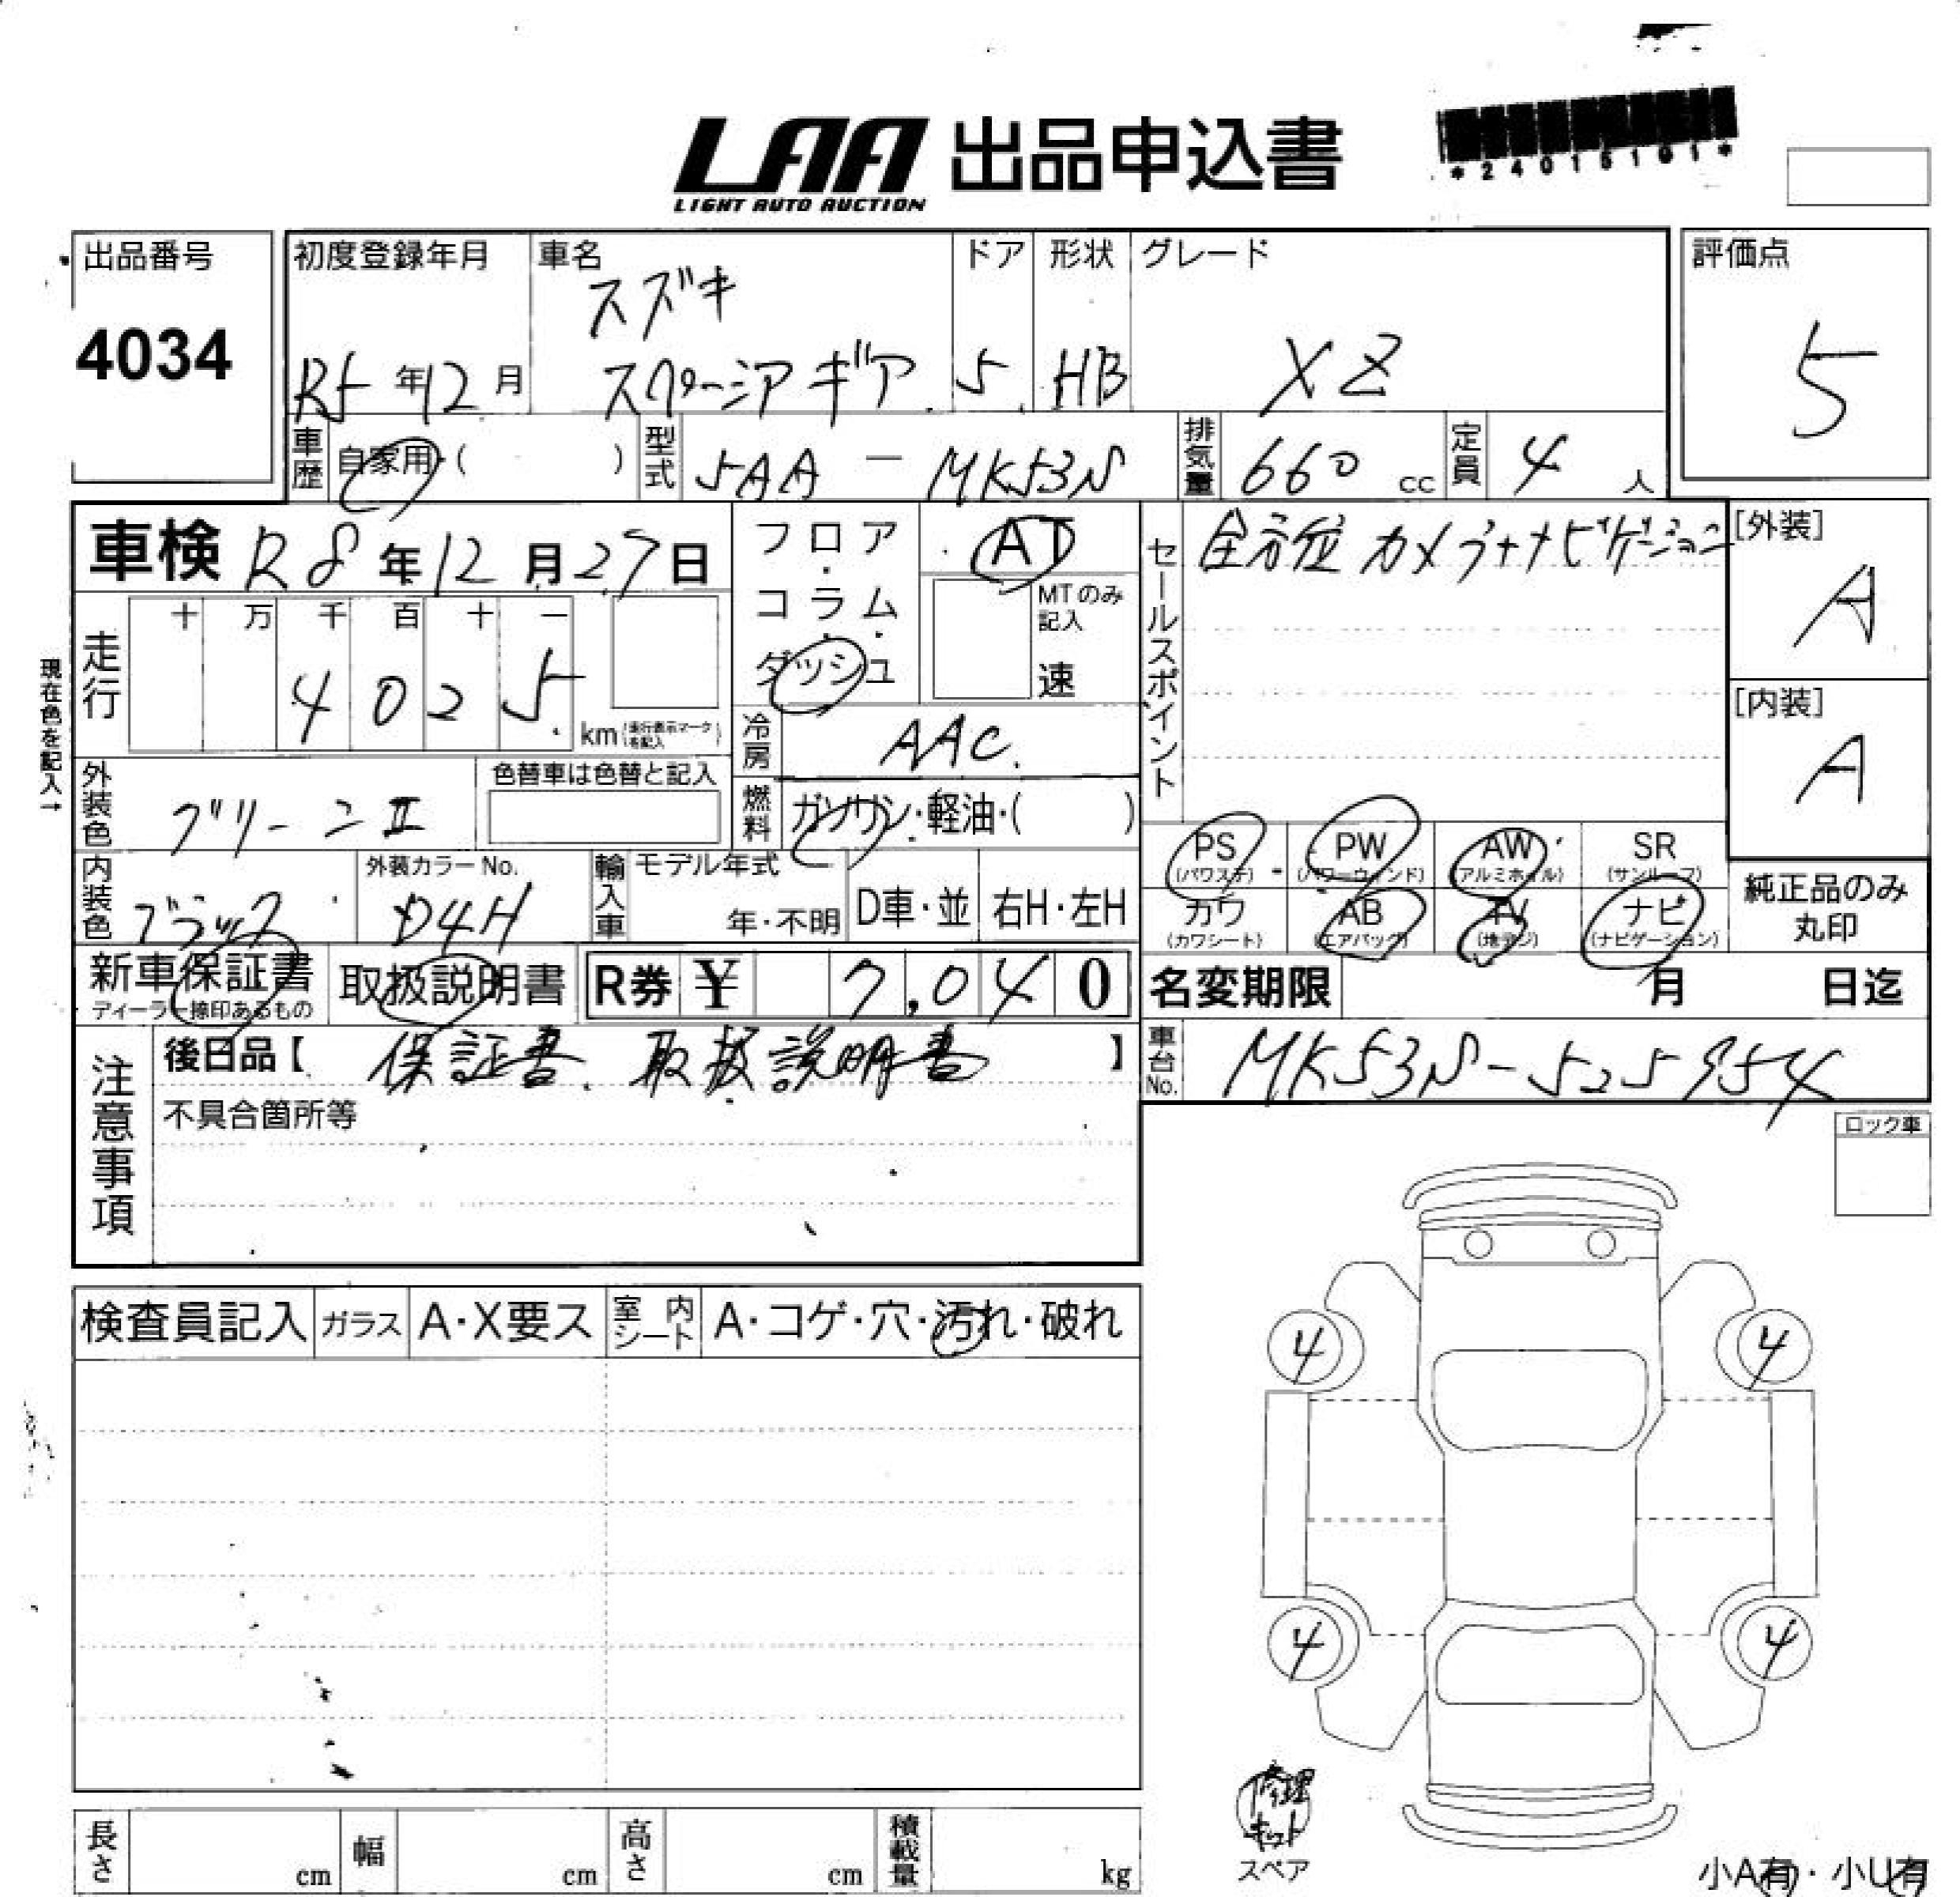 LAA 出品申込書
LIGHT AUTO AUCTION
*24015101*
出品番号
4034
初度登録年月
R5年12月
車名
スズキ
スペーシアギア
ドア
5
形状
HB
グレード
XZ
評価点
5
車歴 自家用・( )
型式 5AA - MK53S
排気量 660 cc
定員 4 人
車検 R8年12月27日
フロア・コラム・ダッシュ
AT
MTのみ記入
速
セールスポイント
全方位カメラナビゲーション
[外装]
A
[内装]
A
現在色を記入→
走行
十 万 千 百 十 一
4 0 2 5
km (走行表示マークを記入)
冷房 AAC.
外装色 グリーンⅡ
色替車は色替と記入
燃料 ガソリン・軽油・( )
PS (パワステ)
PW (パワーウィンド)
AW (アルミホイル)
SR (サンルーフ)
カワ (カワシート)
AB (エアバッグ)
TV (地デジ)
ナビ (ナビゲーション)
純正品のみ
丸印
内装色 ブラック
外装カラーNo.
D4H
輸入車
モデル年式
年・不明
D車・並
右H・左H
新車保証書
ディーラー捺印あるもの
取扱説明書
R券 ¥ 7,040
名変期限 月 日迄
注意事項
後日品【 保証書、取扱説明書 】
車台No. MK53S-525954
不具合箇所等
ロック車
検査員記入
ガラス A・X要ス
室内シート A・コゲ・穴・汚れ・破れ
4 4
4 4
修理
キット
スペア
長さ cm
幅 cm
高さ cm
積載量 kg
小A有・小U有